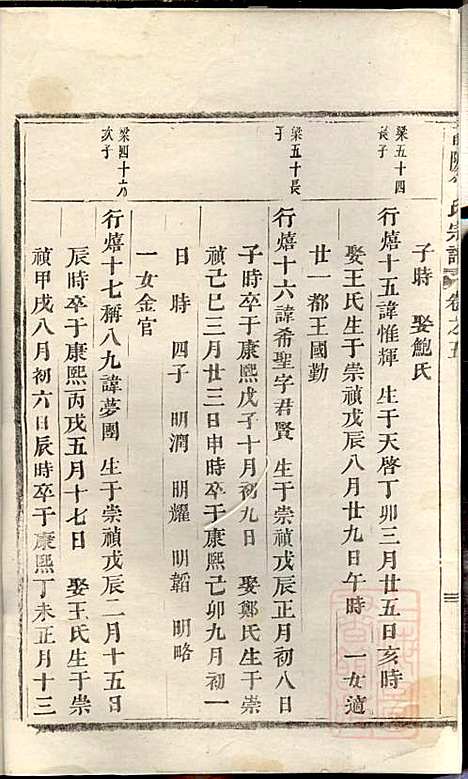 氏宗譜 卷之五
子時 娶鮑氏
梁五十四
長子
行熺十五諱惟輝 生于天啓丁卯三月廿五日亥時
娶王氏生于崇禎戊辰八月廿九日午時 一女適
廿一都王國勤
梁五十長
子
行熺十六諱希聖字君賢 生于崇禎戊辰正月初八日
子時卒于康熙戊子十月初九日 娶鄭氏生于崇
禎己巳三月廿三日申時卒于康熙己卯九月初一
日 時 四子 明潤 明耀 明韜 明略
一女金官
梁四十六
次子
行熺十七稱八九諱夢團 生于崇禎戊辰二月十五日
辰時卒于康熙丙戌五月十七日 娶王氏生于崇
禎甲戌八月初六日辰時卒于康熙丁未正月十三